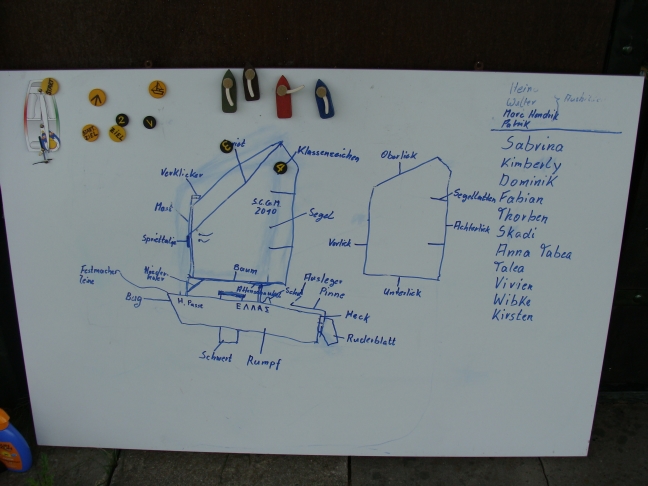 Heinz
Walter
Marc Hendrik
Patrik
Sabrina
Kimberly
Dominik
Fabian
Thorben
Skadi
Anna Tabea
Talea
Vivien
Wibke
Kirsten
2
4
Verklicker
Klassenzeichen
Mast
S.C.G.M.
2010
Segel
Spriettalje
Baum
Festmacher
leine
Bug
Niederholer
Ausleger
Pinne
ΕΛΛΑΣ
Heck
Ruderblatt
Schwert
Rumpf
Oberliek
Segellatten
Achterliek
Vorliek
Unterliek